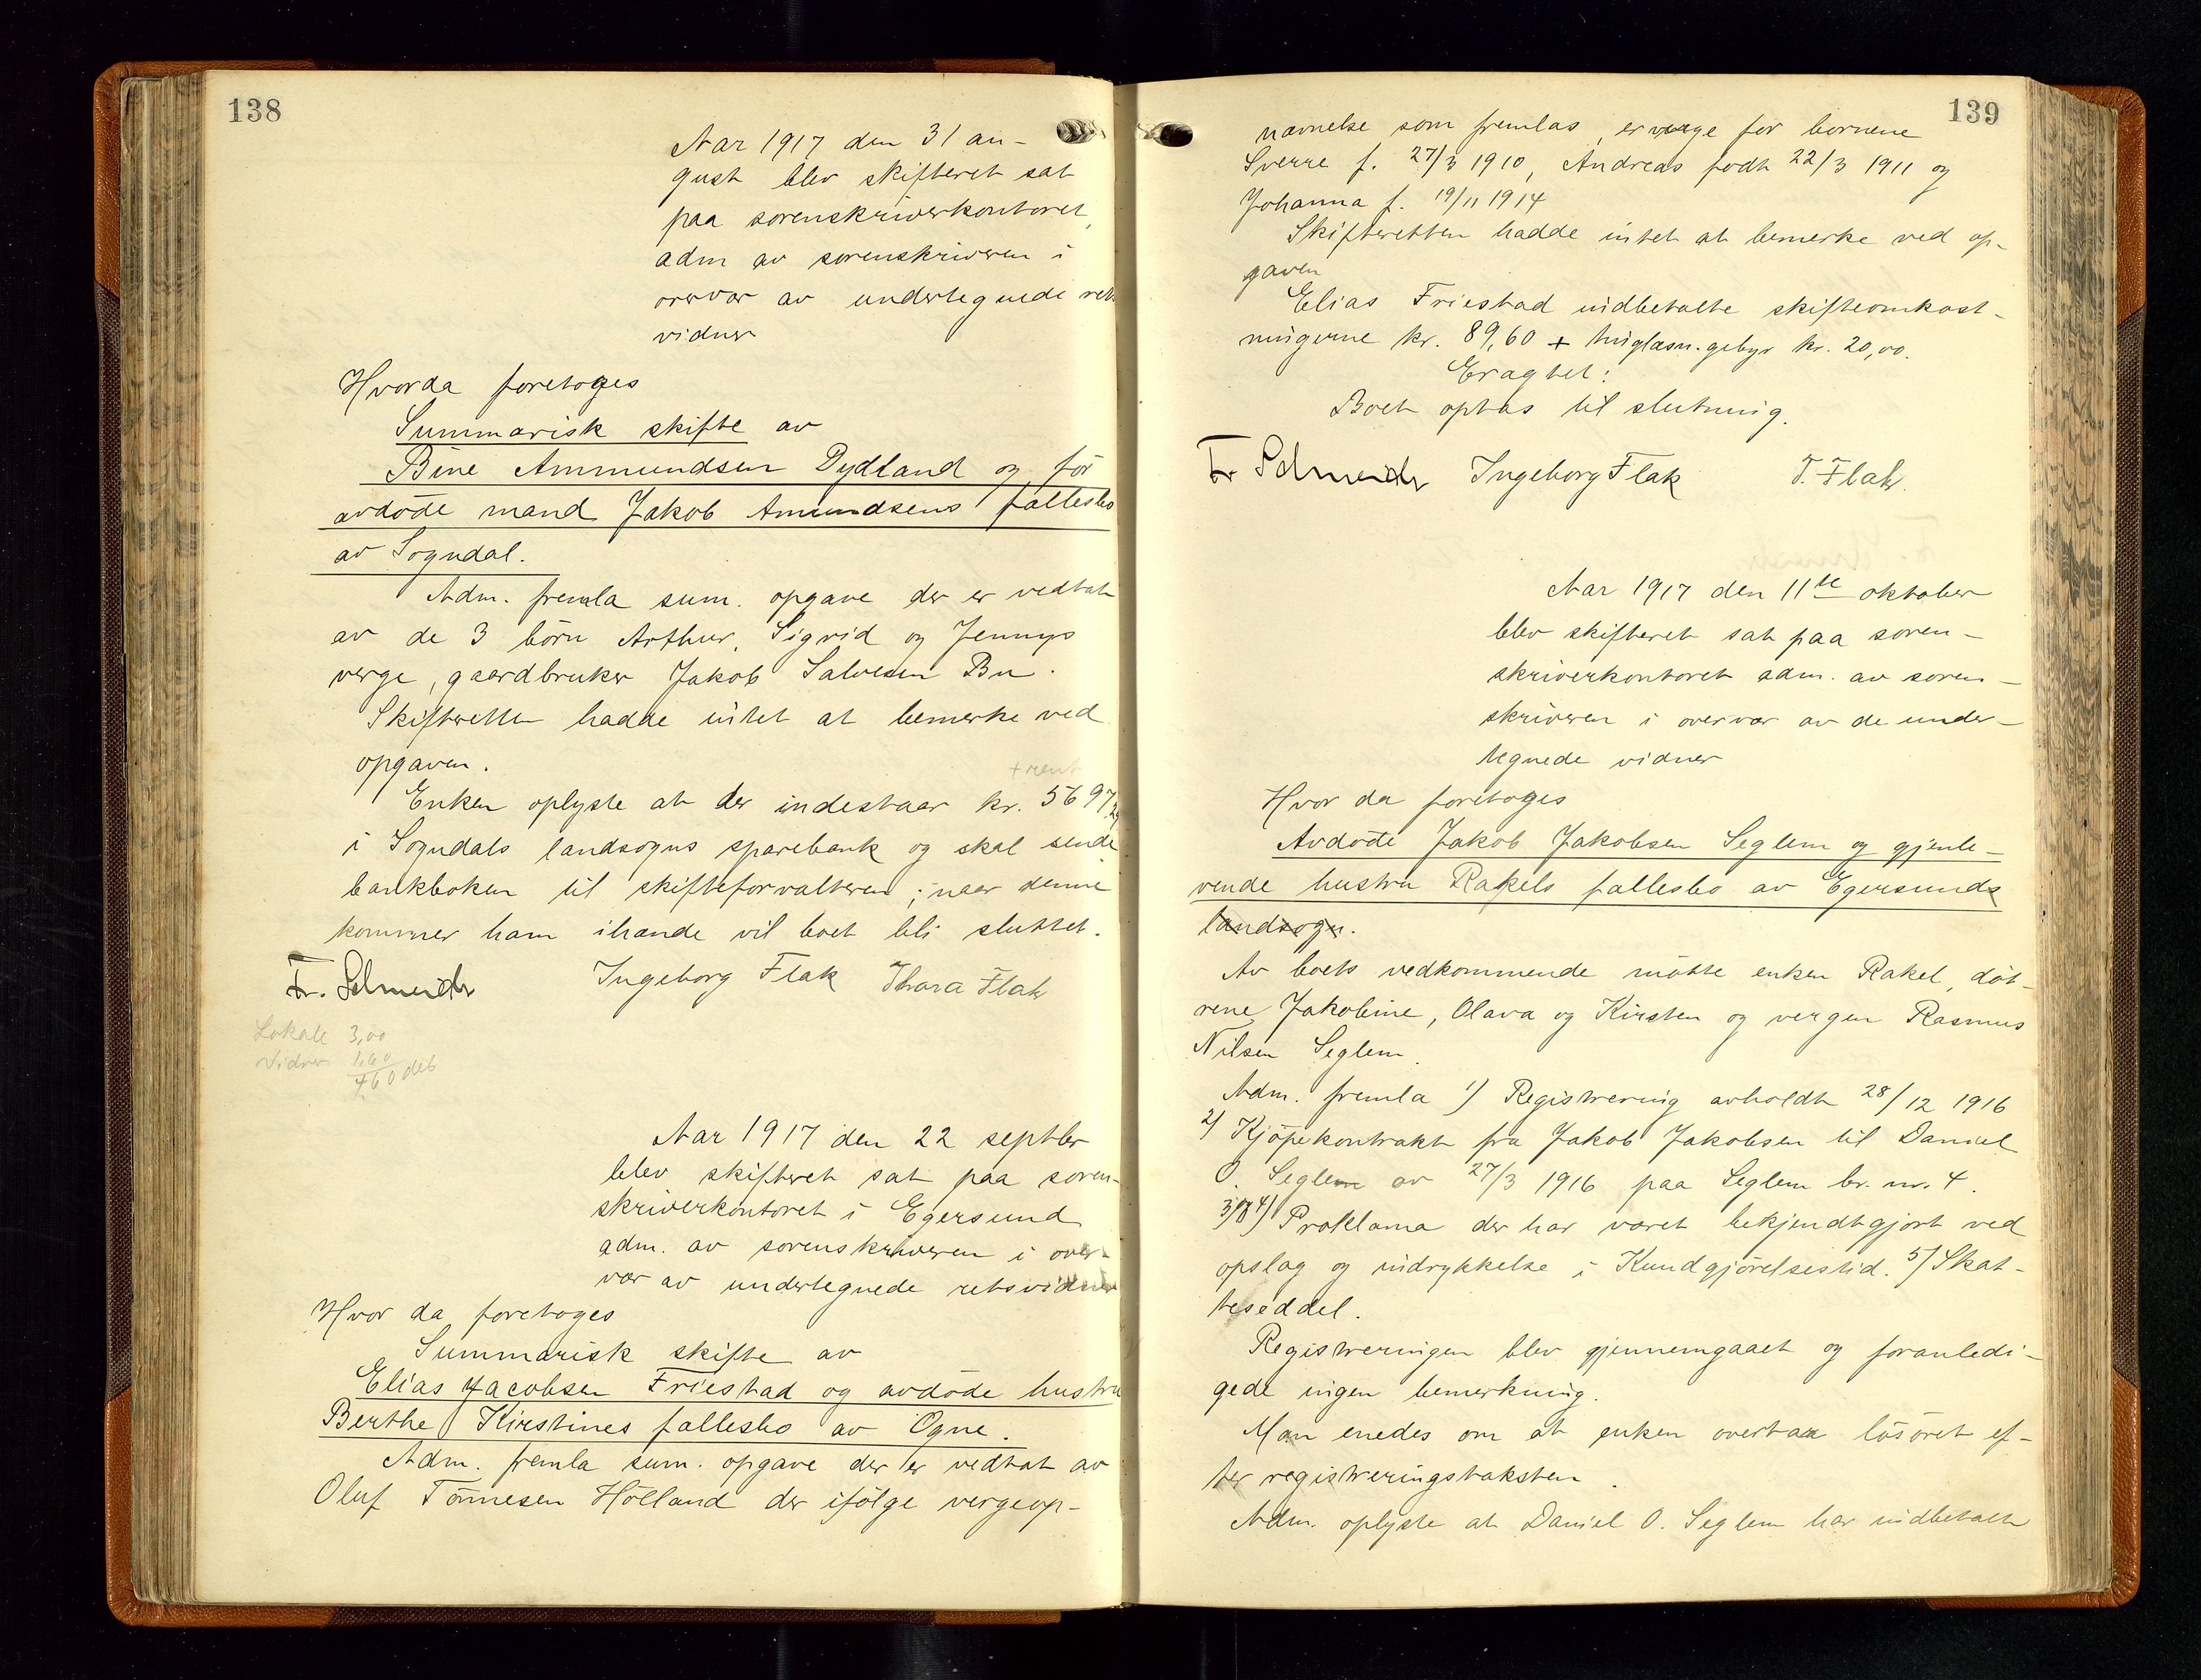 138
Aar 1917 den 31 au-
gust blev skifteret sat
paa sorenskriverkontoret,
adm av sorenskriveren i
overvær av undertegnede ret
vidner
Hvorda foretoges
Summarisk skifte av
Bine Ammundsen Dydland og for
avdøde mand Jakob Amundsens fællesbo
av Sogndal.
Adm. fremla sum. opgave der er vedtat
av de 3 børn Arthur, Sigrid og Jennys
verge, gaardbruker Jakob Salvesen Bu.
Skifteretten hadde intet at bemerke ved
opgaven.
+ rent
Enken oplyste at der indestaar kr. 5697,
i Sogndals landsogns sparebank og skal sende
bankboken til skifteforvalteren; naar denne
kommer ham ihænde vil boet bli sluttet.
Fr. Schneider Ingeborg Flak Thora Flak
Lokale 3,00
Vidner 1,60
4,60 deb
Aar 1917 den 22 septbr
blev skifteret sat paa soren-
skriverkontoret i Egersund
adm. av sorenskriveren i over-
vær av undertegnede retsvidner
Hvor da foretoges
Summarisk skifte av
Elias Jacobsen Friestad og avdøde hustru
Berthe Kirstines fællesbo av Ogne.
Adm. fremla sum. opgave der er vedtat av
Oluf Tønnesen Hølland der ifølge vergeop-
139
nævnelse som fremlas, er verge for børnene
Sverre f. 27/3 1910, Andreas født 22/3 1911 og
Johanna f. 19/11 1914
Skifteretten hadde intet at bemerke ved op-
gaven
Elias Friestad indbetalte skifteomkost-
ningerne kr. 89,60 + tinglæsn.gebyr kr. 20,00.
Eragtet:
Boet optas til slutning.
Fr. Schneider Ingeborg Flak T. Flak.
Aar 1917 den 11te oktober
blev skifteret sat paa soren-
skriverkontoret adm. av soren-
skriveren i overvær av de under-
tegnede vidner
Hvor da foretoges
Avdøde Jakob Jakobsen Seglem og gjenle-
vende hustru Rakels fællesbo av Egersunds
landsogn.
Av boets vedkommende møtte enken Rakel, døt-
rene Jakobine, Olava og Kirsten og vergen Rasmus
Nilsen Seglem.
Adm. fremla 1) Registrering avholdt 28/12 1916
2) Kjøpekontrakt fra Jakob Jakobsen til Daniel
O. Seglem av 27/3 1916 paa Seglem br. nr. 4.
3) og 4) Proklama der har været bekjendtgjort ved
opslag og indrykkelse i Kundgjørelsestid. 5) Skat-
teseddel.
Registreringen blev gjennemgaaet og foranledi-
gede ingen bemerkning.
Man enedes om at enken overtar løsøret ef-
ter registreringstaksten.
Adm. oplyste at Daniel O. Seglem har indbetalt